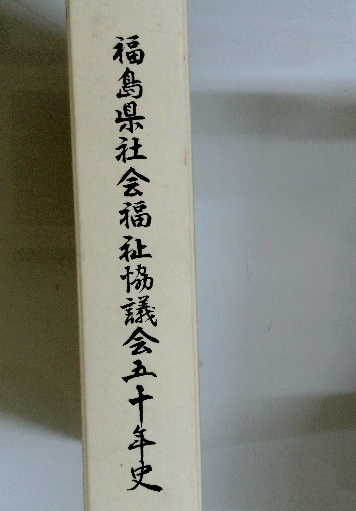 福島県社会福祉協議会五十年史